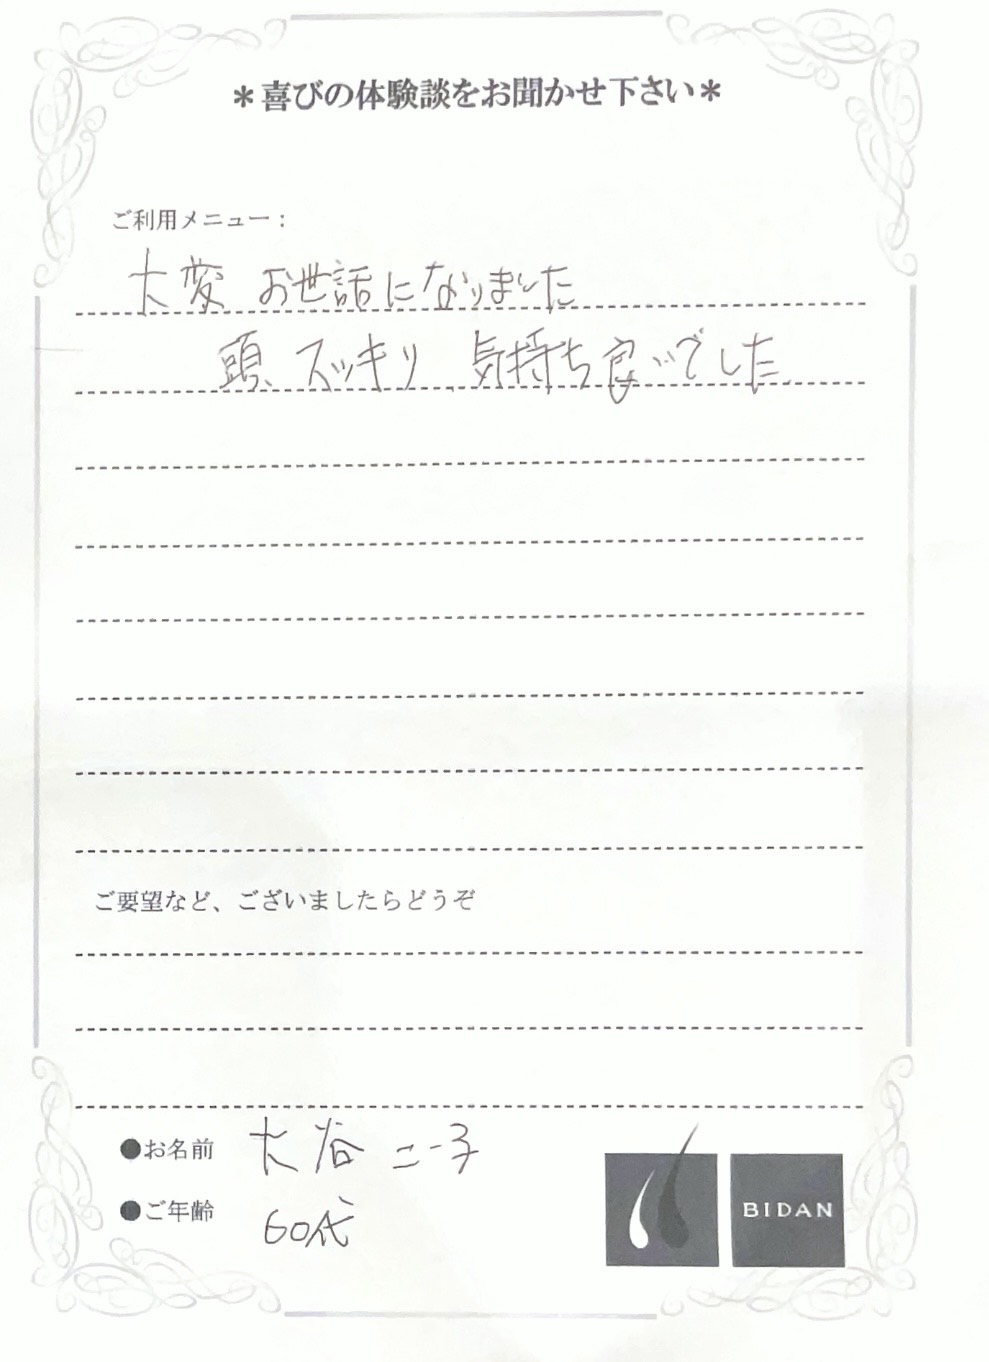 ＊喜びの体験談をお聞かせ下さい＊
ご利用メニュー：
大変 お世話になりました
頭、スッキリ 気持ち良いでした
ご要望など、ございましたらどうぞ
●お名前 大谷 ニ一子
●ご年齢 60代
BIDAN